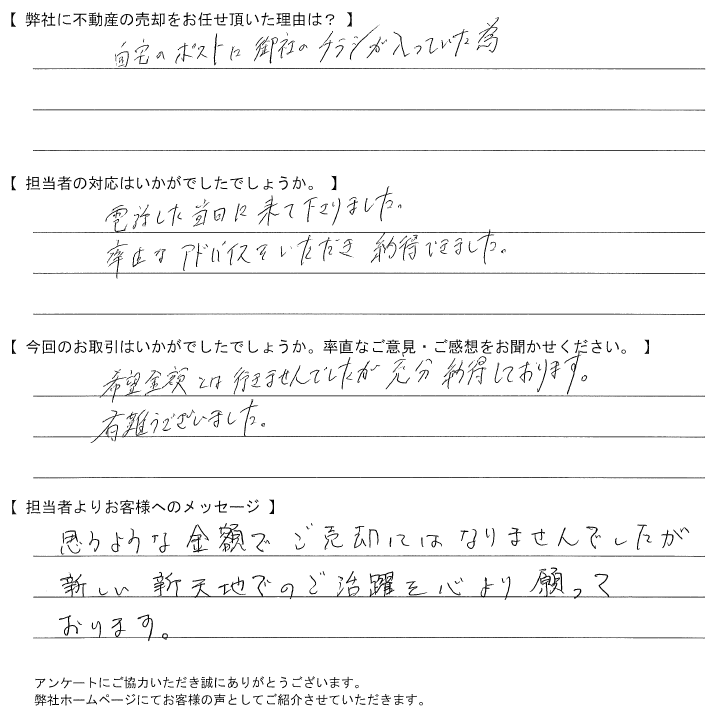 【 弊社に不動産の売却をお任せ頂いた理由は？ 】
自宅のポストに御社のチラシが入っていた為
【 担当者の対応はいかがでしたでしょうか。 】
電話した当日に来て下さりました。
率直なアドバイスをいただき 納得できました。
【 今回のお取引はいかがでしたでしょうか。率直なご意見・ご感想をお聞かせください。 】
希望金額とは行きませんでしたが 充分納得しております。
有難うございました。
【 担当者よりお客様へのメッセージ 】
思うような金額でご売却にはなりませんでしたが
新しい新天地でのご活躍を心より願って
おります。
アンケートにご協力いただき誠にありがとうございます。
弊社ホームページにてお客様の声としてご紹介させていただきます。